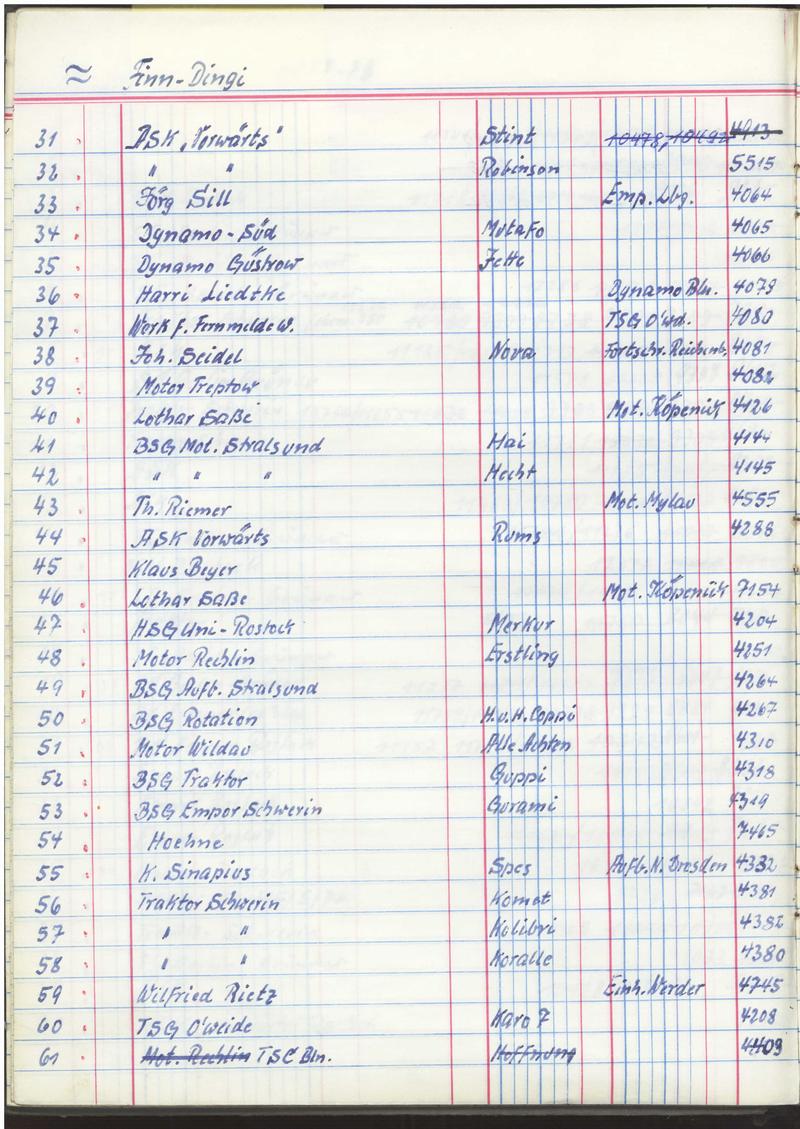 ≈ Finn-Dingi
31 ASK „Vorwärts" Stint 10478, 10492 4913
32 " " Robinson 5515
33 Jörg Sill Emp. Lbg. 4064
34 Dynamo-Süd Mutafo 4065
35 Dynamo Güstrow Fette 4066
36 Harri Liedtke Dynamo Bln. 4079
37 Werk f. Fernmeldew. TSG O'wd. 4080
38 Joh. Seidel Nova Fortschr. Reichenb. 4081
39 Motor Treptow 4082
40 Lothar Saße Mot. Köpenick 4126
41 BSG Mot. Stralsund Hai 4144
42 " " " Hecht 4145
43 Th. Riemer Mot. Mylau 4555
44 ASK Vorwärts Rums 4288
45 Klaus Beyer
46 Lothar Saße Mot. Köpenick 7154
47 HSG Uni-Rostock Merkur 4204
48 Motor Rechlin Erstling 4251
49 BSG Aufb. Stralsund 4264
50 BSG Rotation H.u.H. Coppi 4267
51 Motor Wildau Alle Achten 4310
52 BSG Traktor Guppi 4318
53 BSG Empor Schwerin Gurami 4319
54 Hoehne 7465
55 K. Sinapius Spes Aufb. N. Dresden 4332
56 Traktor Schwerin Komet 4381
57 " " Kolibri 4382
58 " " Koralle 4380
59 Wilfried Rietz Einh. Werder 4745
60 TSG O'weide Karo 7 4208
61 Mot. Rechlin TSC Bln. Hoffnung 4409